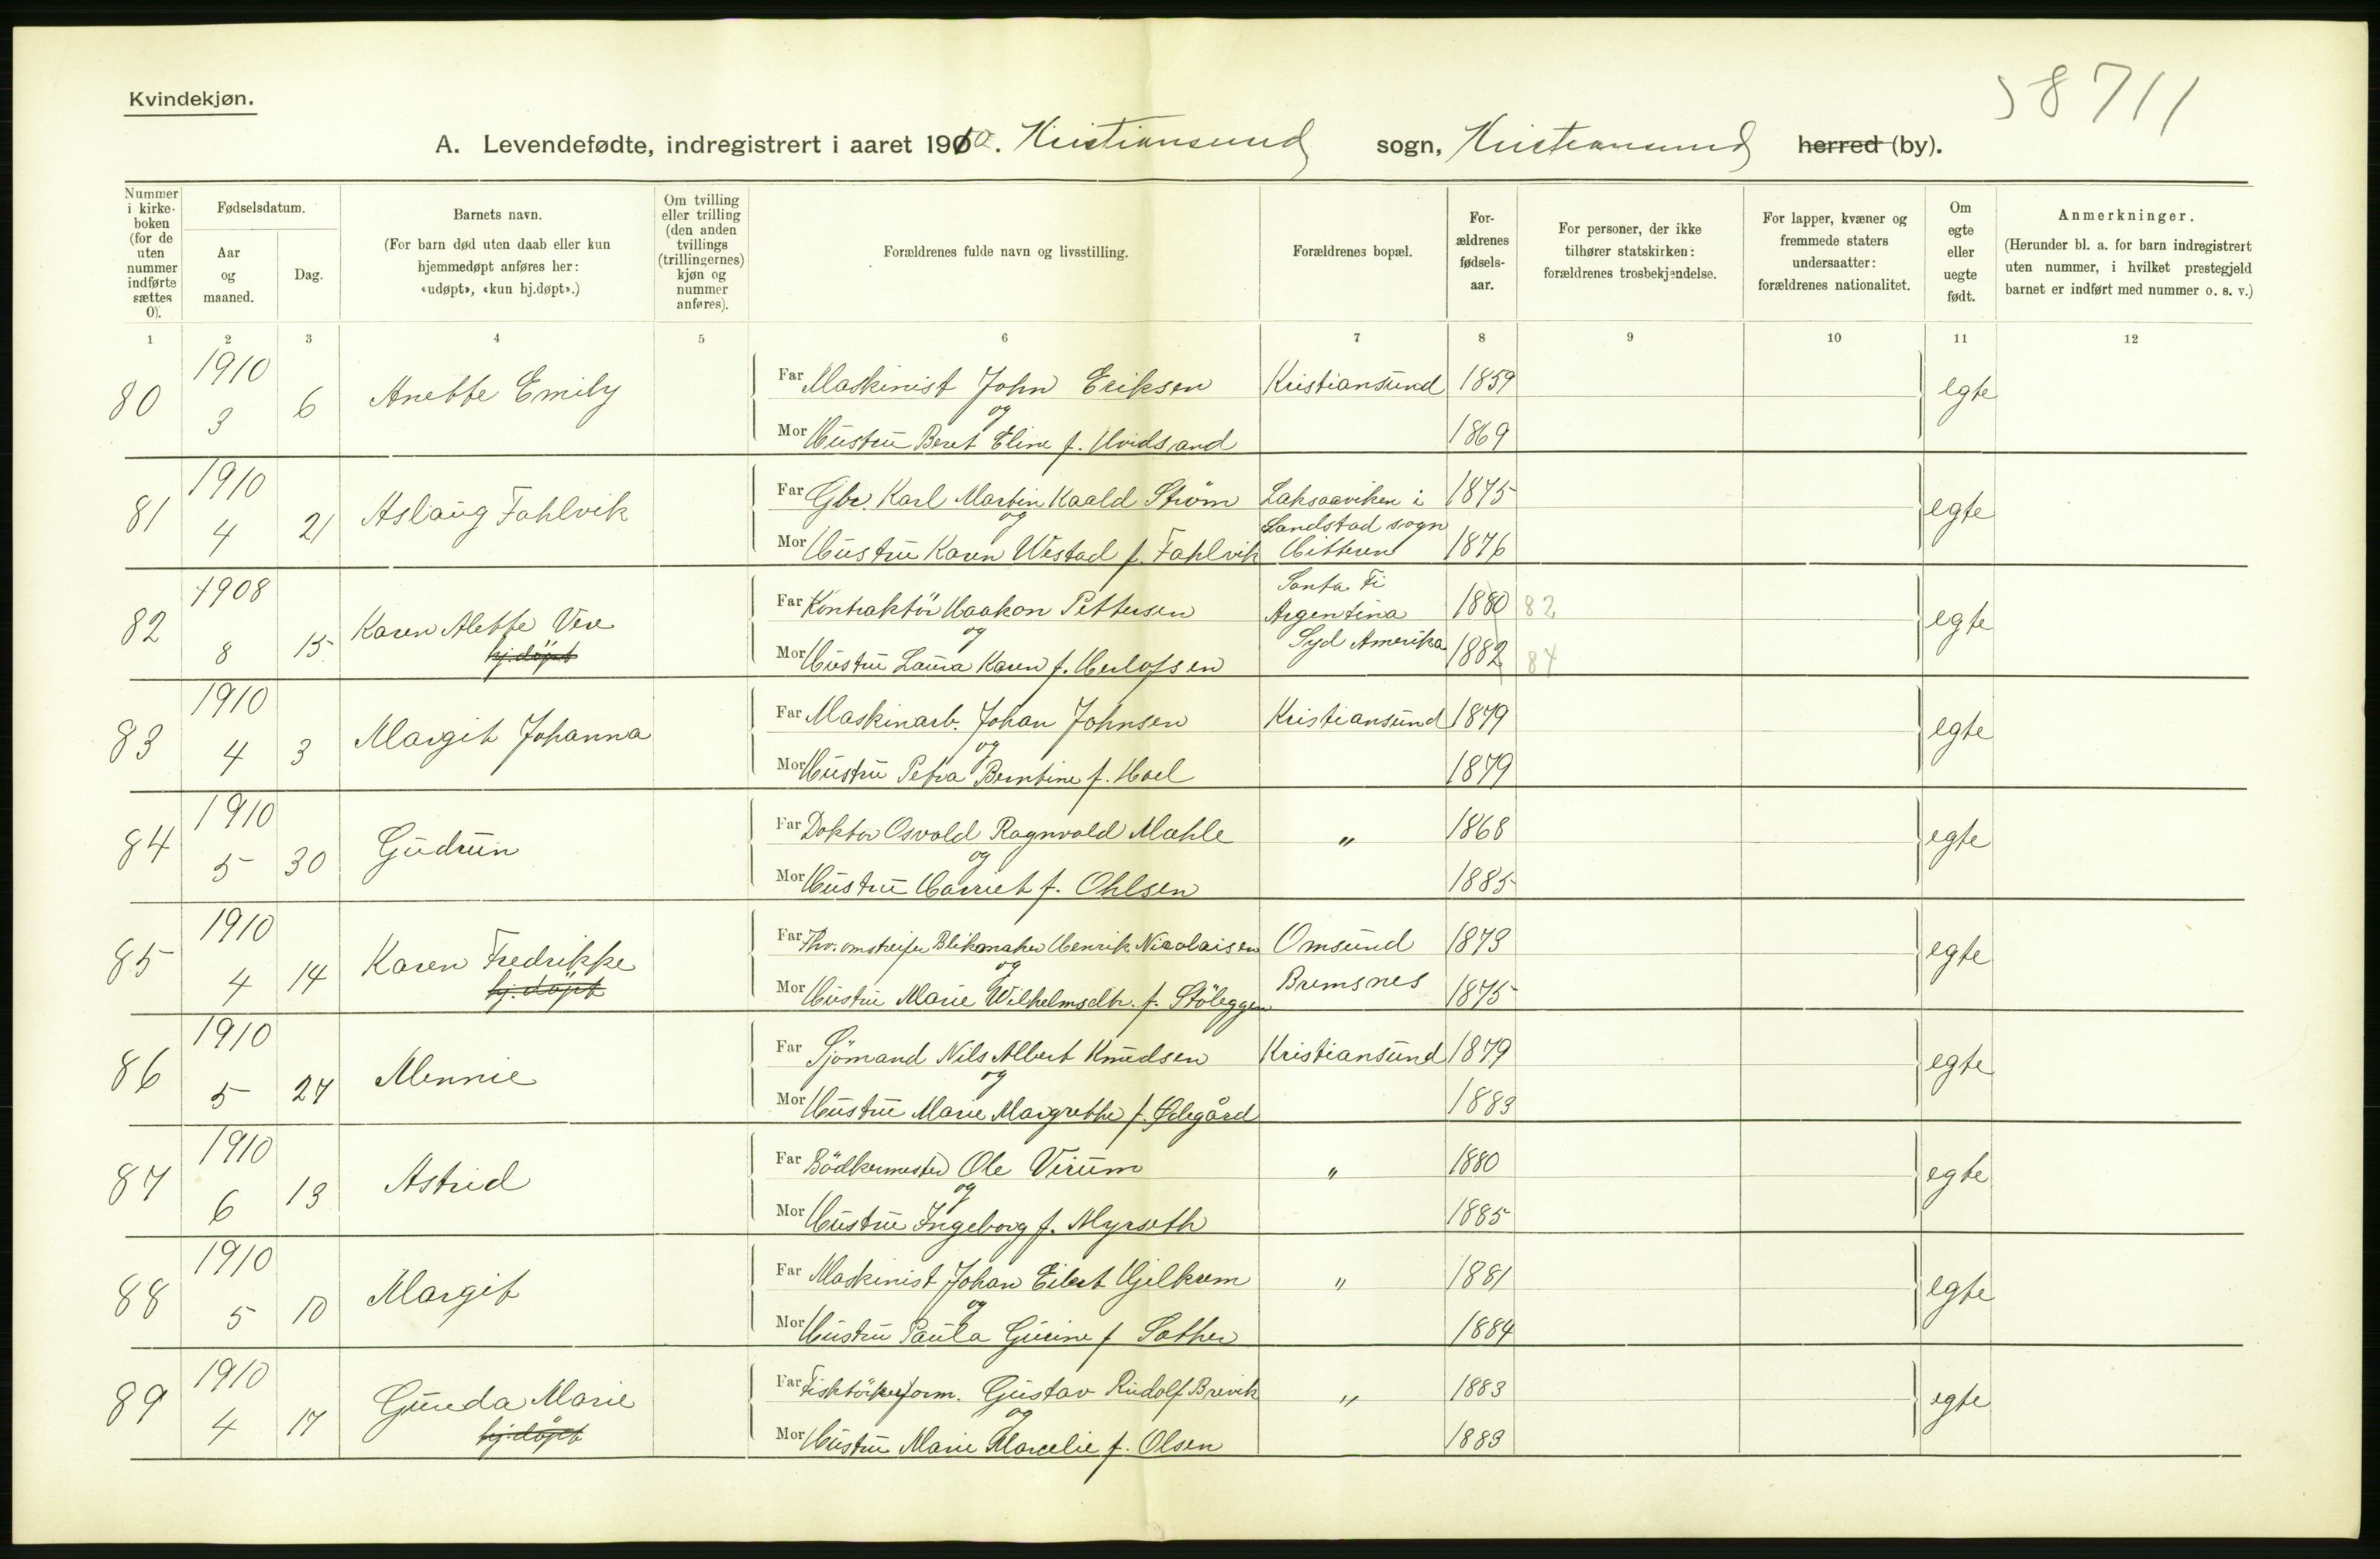 Kvindekjøn.
58711
A. Levendefødte, indregistrert i aaret 1910. Kristiansund sogn, Kristiansund herred (by).
Nummer i kirke-boken (for de uten nummer indførte sættes 0).
Fødselsdatum.
Aar og maaned.
Dag.
Barnets navn.
(For barn død uten daab eller kun hjemmedøpt anføres her: «udøpt», «kun hj.døpt».)
Om tvilling eller trilling (den anden tvillings (trillingernes) kjøn og nummer anføres).
Forældrenes fulde navn og livsstilling.
Forældrenes bopæl.
For-ældrenes fødsels-aar.
For personer, der ikke tilhører statskirken: forældrenes trosbekjendelse.
For lapper, kvæner og fremmede staters undersaatter: forældrenes nationalitet.
Om egte eller uegte født.
Anmerkninger.
(Herunder bl. a. for barn indregistrert uten nummer, i hvilket prestegjeld barnet er indført med nummer o. s. v.)
1 2 3 4 5 6 7 8 9 10 11 12
80 1910 3 6 Anette Emily
Far Maskinist John Eriksen Kristiansund 1859 egte
og
Mor Hustru Beret Eline f. Hvidsand 1869
81 1910 4 21 Aslaug Fahlvik
Far Gbr. Karl Martin Kaald Strøm Laksaaviken i 1875 egte
og Sandstad sogn
Mor Hustru Karen Westad f. Fahlvik Hitteren 1876
82 1908 8 15 Karen Alette Vere
hj.döpt
Santa Fi
Far Kontraktör Haakon Pettersen Argentina 1880 82 egte
og Syd Amerika
Mor Hustru Laura Karen f. Herlofsen 1882 84
83 1910 4 3 Margit Johanna
Far Maskinarb. Johan Johnsen Kristiansund 1879 egte
og
Mor Hustru Petra Berntine f. Hoel 1879
84 1910 5 30 Gudrun
Far Doktor Osvald Ragnvald Mæhle " 1868 egte
og
Mor Hustru Harriet f. Ohlsen 1885
85 1910 4 14 Karen Fredrikke
hj.döpt
Far Fhv. omstreifer Blikmaker Henrik Nicolaisen Omsund 1873 egte
og Bremsnes
Mor Hustru Marie Wilhelmsdtr. f. Stöleggen 1875
86 1910 5 27 Mennie
Far Sjömand Nils Albert Knudsen Kristiansund 1879 egte
og
Mor Hustru Marie Margrethe f. Ødegård 1883
87 1910 6 13 Astrid
Far Bödkermester Ole Virum " 1880 egte
og
Mor Hustru Ingeborg f. Myrseth 1885
88 1910 5 10 Margit
Far Maskinist Johan Eilert Hjelkrem " 1881 egte
og
Mor Hustru Paula Gurine f. Sæther 1884
89 1910 4 17 Gunda Marie
hj.döpt
Far Gustav Rudolf Brevik " 1883 egte
og
Mor Hustru Marie Marcelie f. Olsen 1883